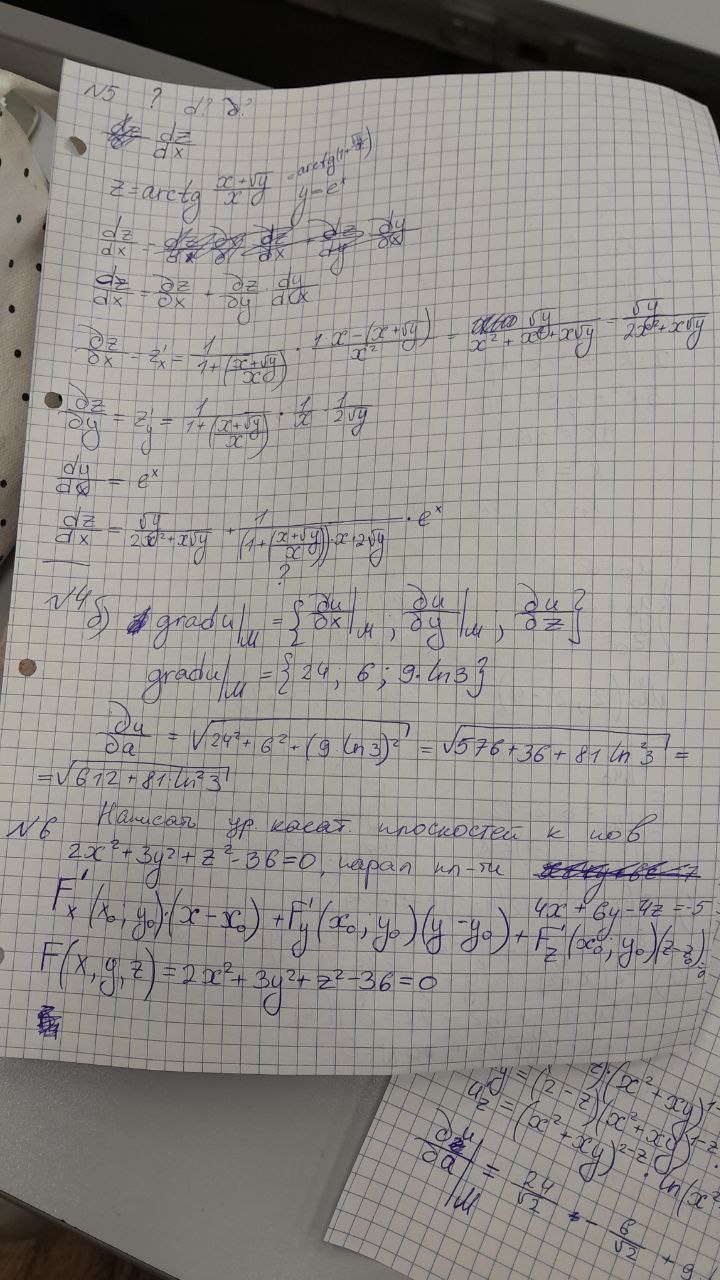 N5 ? d? ∂?
dz/dx
z = arctg (x+√y)/x = arctg(1+√y/x) y = e^x
dz/dx =
dz/dx = ∂z/∂x + ∂z/∂y · dy/dx
∂z/∂x = z'_x = 1/(1+((x+√y)/x)) · (1·x-(x+√y))/x² = √y/(x²+x²+x√y) = √y/(2x²+x√y)
∂z/∂y = z'_y = 1/(1+((x+√y)/x)) · 1/x · 1/(2√y)
dy/dx = e^x
dz/dx = √y/(2x²+x√y) + 1/((1+((x+√y)/x))·x·2√y) · e^x
?
N4 б) gradu|_M = {∂u/∂x|_M ; ∂u/∂y|_M ; ∂u/∂z}
gradu|_M = {24; 6; 9·ln3}
∂u/∂a = √(24²+6²+(9·ln3)²) = √(576+36+81 ln²3) =
= √(612+81·ln²3)
N6 Написать ур. касат. плоскостей к пов
2x²+3y²+z²-36=0, парал пл-ти
4x+6y-4z=-5
F'_x(x₀; y₀)·(x-x₀)+F'_y(x₀; y₀)(y-y₀)+F'_z(x₀; y₀)(z-z₀)
F(x,y,z)=2x²+3y²+z²-36=0
(x²+xy)
u'_z = (x²+xy)^{2-z}·ln(x²
∂u/∂a|_M = 24/√2 - 6/√2 + 9